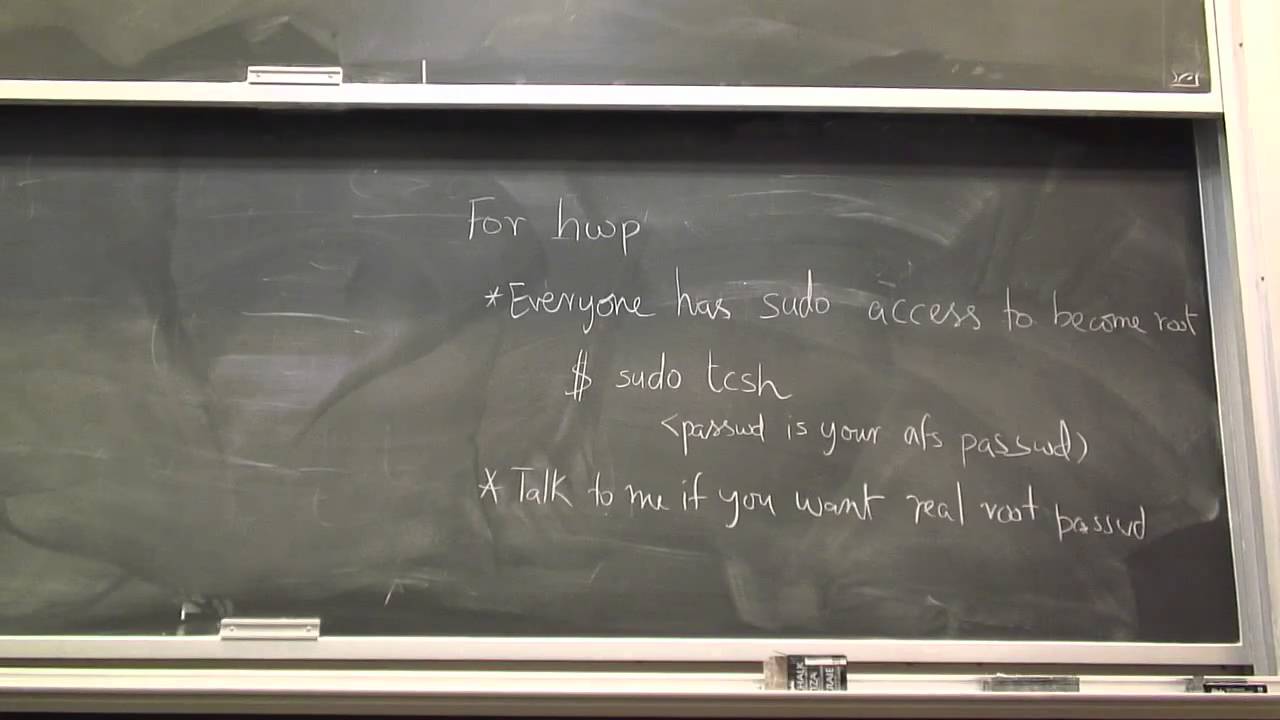 For hwp
*Everyone has sudo access to become root
$ sudo tcsh
<passwd is your afs passwd)
* Talk to me if you want real root passwd